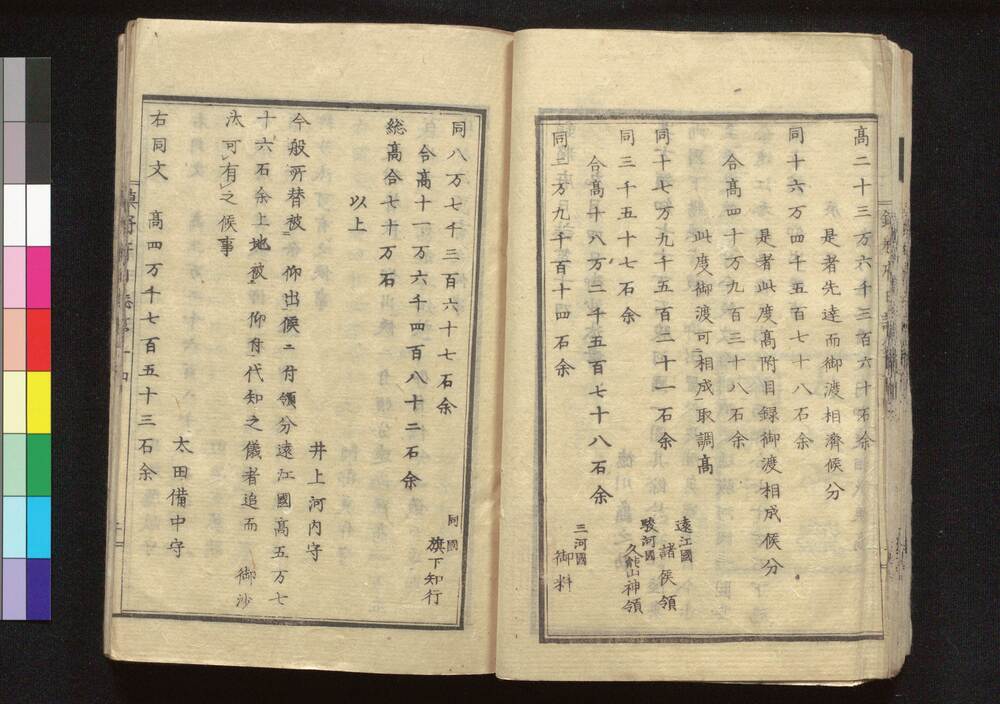 高二十三万六千三百六十石余
是者先達而御渡相済候分
同十六万四千五百七十八石余
是者此度高附目録御渡相成候分
合高四十万九百三十八石余
此度御渡可相成取調高
同十七万九千五百二十一石余
遠江國
諸侯領
同三千五十七石余
駿河國
久能山神領
合高十八万二千五百七十八石余
同一万九千百十四石余
三河國
御料
同八万七千三百六十七石余
同國
旗下知行
合高十一万六千四百八十二石余
総高合七十万石
以上
井上河内守
今般所替被 仰出候ニ付領分遠江國高五万七
十六石余上地被 仰付代知之儀者追而 御沙
汰可有之候事
太田備中守
右同文 高四万千七百五十三石余